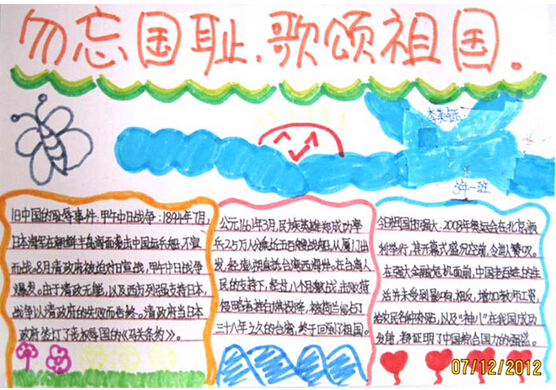 勿忘国耻，歌颂祖国。
旧中国的耻辱事件，甲午中日战争：1894年7月，
日本海军在朝鲜丰岛海面袭击中国运兵船，不宣
而战。8月清政府被迫对日宣战，甲午中日战争
爆发。由于清政无能，以及西方列强支持日本，
战争以清政府的失败而告终。清政府当日本
政府签订了丧权辱国的《马关条约》。
公元1661年3月，民族英雄郑成功率
兵2.5万人分乘几百艘战船，从厦门出
发，经澎湖直抵台湾西海岸。在台湾人
民的支持下，经过八个月激战击败荷
三十八年之久的台湾，终于回到了祖国。
令祖国也强大：2008年奥运会在北京
利举行，其开幕式盛况空前，令世人惊叹。
在强大金融危机面前，中国老百姓的生
活并未受到影响，相反，增加教师工资，
给农民各种补贴，以及“神八”在我国成功
发射，都证明了中国综合国力的强盛。
07/12/2012